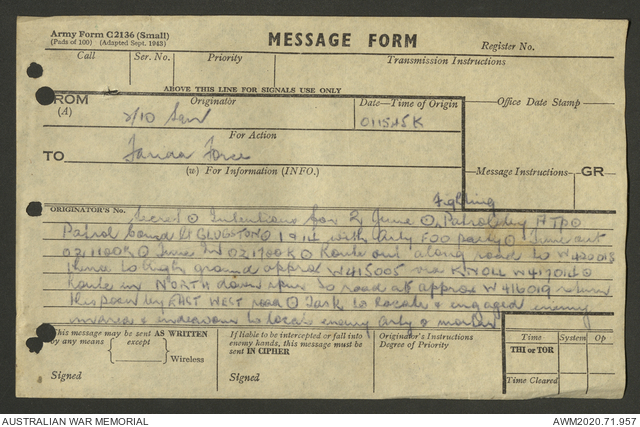 Army Form C2136 (Small)
(Pads of 100) (Adapted Sept. 1943)
MESSAGE FORM
Register No.
Call Ser. No. Priority Transmission Instructions
ABOVE THIS LINE FOR SIGNALS USE ONLY
FROM Originator Date—Time of Origin Office Date Stamp
(A) 2/10 011545K
For Action
TO Farida Force
(w) For Information (INFO.) Message Instructions GR
Fighting
ORIGINATOR'S No. Secret ⊙ Intentions for 2 June ⊙ Patrol
Patrol comd Lt GLUGSTON ⊙ 1 & 14 with arty FOO party ⊙ Time out
021100K ⊙ Time IN 021700K ⊙ Route out along road to W420013
thence to high ground approx W415005 via KNOLL W417014 ⊙
Route in NORTH down spur to road at approx W416019 return
by EAST WEST road ⊙ Task to locate & engaged enemy
& endeavour to locate enemy arty & mortar
This message may be sent AS WRITTEN
by any means except
Wireless
Signed
If liable to be intercepted or fall into
enemy hands, this message must be
sent IN CIPHER
Signed
Originator's Instructions
Degree of Priority
Time System Op
THI or TOR
Time Cleared
AUSTRALIAN WAR MEMORIAL AWM2020.71.957